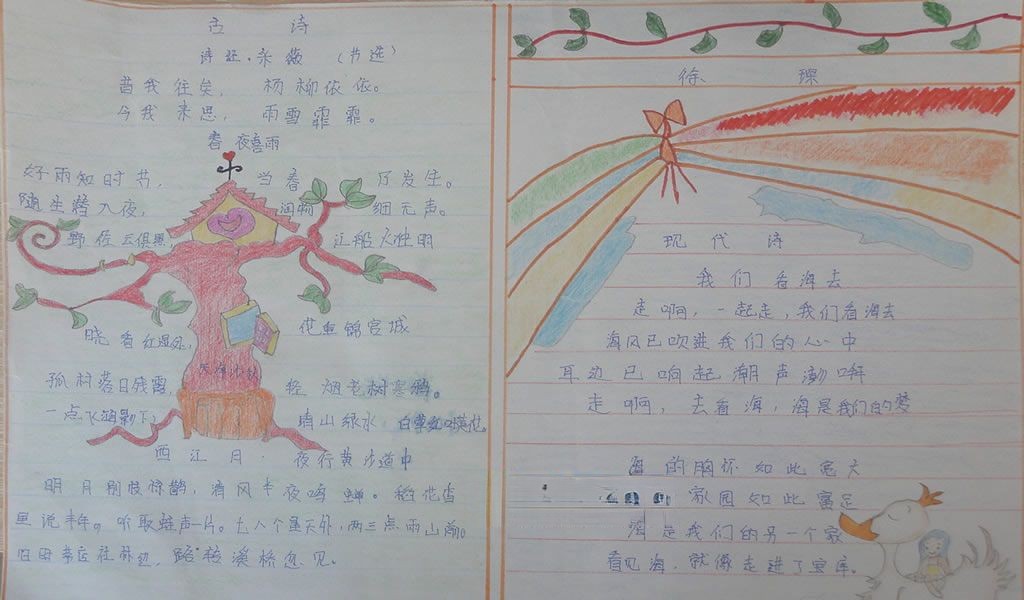 古 诗
诗经·采薇 (节选)
昔我往矣, 杨柳依依。
今我来思, 雨雪霏霏。
春夜喜雨
好雨知时节, 当春乃发生。
随 潜入夜, 润 细无声。
野径云俱黑, 江船火独明
晓看红湿处, 花重锦官城
孤村落日残霞, 轻烟老树寒鸦。
一点飞鸿影下, 山绿水 白草红 黄花。
西江月· 夜行黄沙道中
明月别枝惊鹊, 清风半夜鸣蝉。稻花香
里说丰年。听取蛙声一片。七八个星天外,两三点雨山前。
旧时茅店社林边, 路转溪桥忽见。
徐 璟
现代诗
我们看海去
走啊,一起走,我们看海去
海风已吹进我们的心中
耳边已响起潮声澎湃
走啊,去看海,海是我们的梦
的胸怀如此宽大
家园如此富足
海是我们的另一个家
看见海,就像走进了宝库。